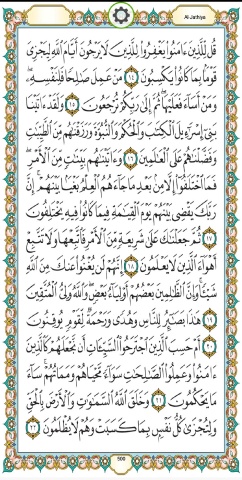 Al-Jathiya
قُل لِّلَّذِينَ ءَامَنُوا۟ يَغْفِرُوا۟ لِلَّذِينَ لَا يَرْجُونَ أَيَّامَ ٱللَّهِ لِيَجْزِىَ
قَوْمًۢا بِمَا كَانُوا۟ يَكْسِبُونَ ١٤ مَنْ عَمِلَ صَٰلِحًا فَلِنَفْسِهِۦ
وَمَنْ أَسَآءَ فَعَلَيْهَا ثُمَّ إِلَىٰ رَبِّكُمْ تُرْجَعُونَ ١٥ وَلَقَدْ ءَاتَيْنَا
بَنِىٓ إِسْرَٰٓءِيلَ ٱلْكِتَٰبَ وَٱلْحُكْمَ وَٱلنُّبُوَّةَ وَرَزَقْنَٰهُم مِّنَ ٱلطَّيِّبَٰتِ
وَفَضَّلْنَٰهُمْ عَلَى ٱلْعَٰلَمِينَ ١٦ وَءَاتَيْنَٰهُم بَيِّنَٰتٍ مِّنَ ٱلْأَمْرِ
فَمَا ٱخْتَلَفُوٓا۟ إِلَّا مِنۢ بَعْدِ مَا جَآءَهُمُ ٱلْعِلْمُ بَغْيًۢا بَيْنَهُمْ إِنَّ
رَبَّكَ يَقْضِى بَيْنَهُمْ يَوْمَ ٱلْقِيَٰمَةِ فِيمَا كَانُوا۟ فِيهِ يَخْتَلِفُونَ
١٧ ثُمَّ جَعَلْنَٰكَ عَلَىٰ شَرِيعَةٍ مِّنَ ٱلْأَمْرِ فَٱتَّبِعْهَا وَلَا تَتَّبِعْ
أَهْوَآءَ ٱلَّذِينَ لَا يَعْلَمُونَ ١٨ إِنَّهُمْ لَن يُغْنُوا۟ عَنكَ مِنَ ٱللَّهِ
شَيْـًٔا وَإِنَّ ٱلظَّٰلِمِينَ بَعْضُهُمْ أَوْلِيَآءُ بَعْضٍ وَٱللَّهُ وَلِىُّ ٱلْمُتَّقِينَ
١٩ هَٰذَا بَصَٰٓئِرُ لِلنَّاسِ وَهُدًى وَرَحْمَةٌ لِّقَوْمٍ يُوقِنُونَ
٢٠ أَمْ حَسِبَ ٱلَّذِينَ ٱجْتَرَحُوا۟ ٱلسَّيِّـَٔاتِ أَن نَّجْعَلَهُمْ كَٱلَّذِينَ
ءَامَنُوا۟ وَعَمِلُوا۟ ٱلصَّٰلِحَٰتِ سَوَآءً مَّحْيَاهُمْ وَمَمَاتُهُمْ سَآءَ
مَا يَحْكُمُونَ ٢١ وَخَلَقَ ٱللَّهُ ٱلسَّمَٰوَٰتِ وَٱلْأَرْضَ بِٱلْحَقِّ
وَلِتُجْزَىٰ كُلُّ نَفْسٍۭ بِمَا كَسَبَتْ وَهُمْ لَا يُظْلَمُونَ ٢٢
500